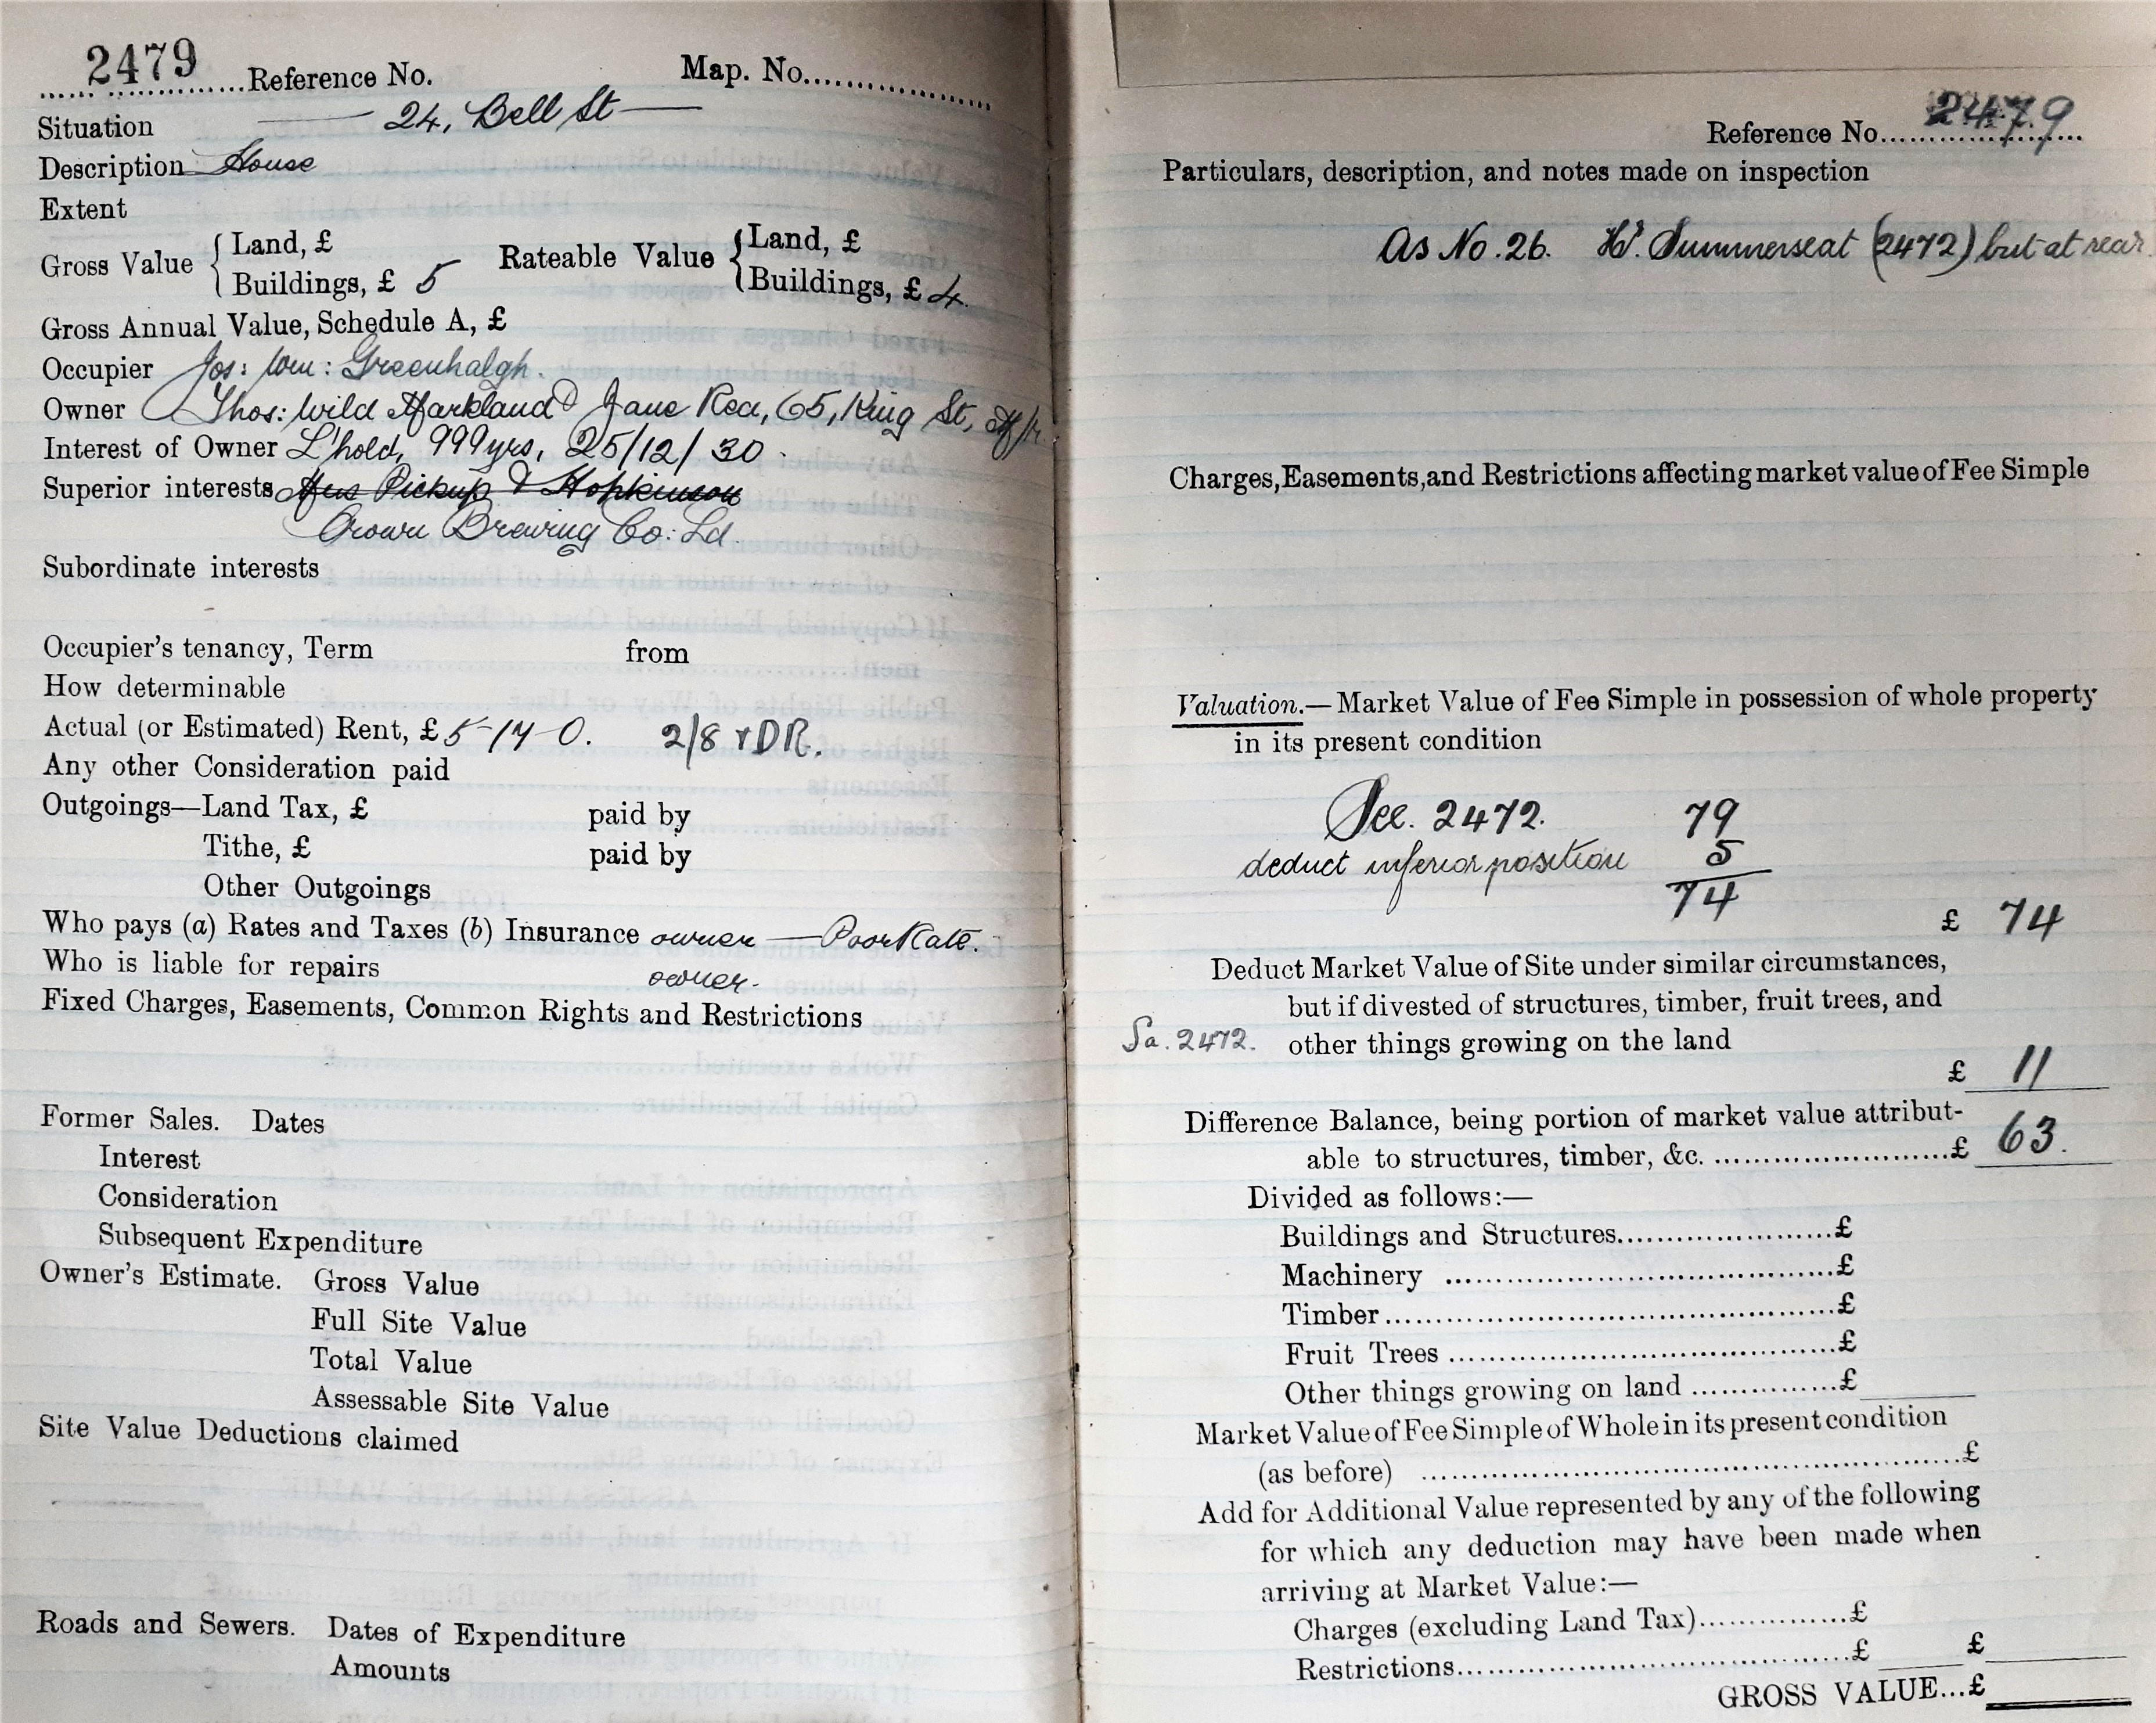 2479 Reference No. Map. No.
Situation 24, Bell St
Description House
Extent
Gross Value { Land, £ Rateable Value { Land, £
Buildings, £ 5 Buildings, £ 4
Gross Annual Value, Schedule A, £
Occupier Jos: Wm: Greenhalgh.
Owner Thos: Wild Markland & Jane Rea, 65, King St, M/r
Interest of Owner L'hold, 999 yrs, 25/12/30
Superior interests Pickup & Hopkinson
Crown Brewing Co: Ld.
Subordinate interests
Occupier's tenancy, Term from
How determinable
Actual (or Estimated) Rent, £ 5-14-0. 2/8 + DR.
Any other Consideration paid
Outgoings—Land Tax, £ paid by
Tithe, £ paid by
Other Outgoings
Who pays (a) Rates and Taxes (b) Insurance owner — Poor Rate.
Who is liable for repairs owner.
Fixed Charges, Easements, Common Rights and Restrictions
Former Sales. Dates
Interest
Consideration
Subsequent Expenditure
Owner's Estimate. Gross Value
Full Site Value
Total Value
Assessable Site Value
Site Value Deductions claimed
Roads and Sewers. Dates of Expenditure
Amounts
Reference No. 2479
Particulars, description, and notes made on inspection
As No. 26. Hr. Summerseat (2472) but at rear
Charges, Easements, and Restrictions affecting market value of Fee Simple
Valuation.—Market Value of Fee Simple in possession of whole property
in its present condition
See. 2472. 79
deduct inferior position 5
74
£ 74
Deduct Market Value of Site under similar circumstances,
but if divested of structures, timber, fruit trees, and
Sa. 2472. other things growing on the land
£ 11
Difference Balance, being portion of market value attribut-
able to structures, timber, &c. £ 63.
Divided as follows:—
Buildings and Structures £
Machinery £
Timber £
Fruit Trees £
Other things growing on land £
Market Value of Fee Simple of Whole in its present condition
(as before) £
Add for Additional Value represented by any of the following
for which any deduction may have been made when
arriving at Market Value:—
Charges (excluding Land Tax) £
Restrictions £ £
GROSS VALUE...£